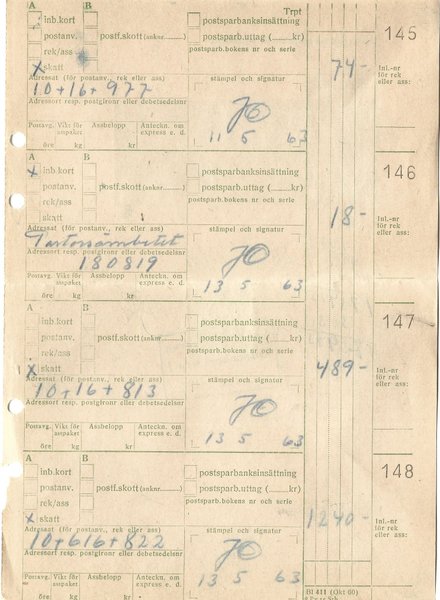 A B Trpt
inb.kort postsparbanksinsättning 145
postanv. postf.skott (anknr ) postsparb.uttag ( kr)
rek/ass postsparb.bokens nr och serie
x skatt 74- Inl.-nr för rek eller ass:
Adressat (för postanv., rek eller ass) stämpel och signatur
10+16+977
Adressort resp. postgironr eller debetsedelsnr
JO
Postavg. Vikt för asspaket Assbelopp Anteckn. om express e. d.
öre kg kr 11 5 63
A B
x inb.kort postsparbanksinsättning 146
postanv. postf.skott (anknr ) postsparb.uttag ( kr)
rek/ass postsparb.bokens nr och serie
skatt 18- Inl.-nr för rek eller ass:
Adressat (för postanv., rek eller ass) stämpel och signatur
Pastorsämbetet
Adressort resp. postgironr eller debetsedelsnr
180819 JO
Postavg. Vikt för asspaket Assbelopp Anteckn. om express e. d.
öre kg kr 13 5 63
A B
inb.kort postsparbanksinsättning 147
postanv. postf.skott (anknr ) postsparb.uttag ( kr)
rek/ass postsparb.bokens nr och serie
x skatt 489- Inl.-nr för rek eller ass:
Adressat (för postanv., rek eller ass) stämpel och signatur
10+16+813
Adressort resp. postgironr eller debetsedelsnr
JO
Postavg. Vikt för asspaket Assbelopp Anteckn. om express e. d.
öre kg kr 13 5 63
A B
inb.kort postsparbanksinsättning 148
postanv. postf.skott (anknr ) postsparb.uttag ( kr)
rek/ass postsparb.bokens nr och serie
x skatt 1240- Inl.-nr för rek eller ass:
Adressat (för postanv., rek eller ass) stämpel och signatur
10+616+822
Adressort resp. postgironr eller debetsedelsnr
JO
Postavg. Vikt för asspaket Assbelopp Anteckn. om express e. d.
öre kg kr 13 5 63
Bl 411 (Okt 60)